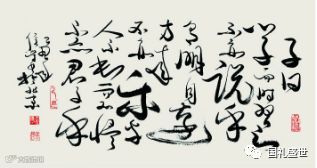 子曰
學而時習之
不亦說乎
有朋自遠
方來
不亦樂乎
人不知而不慍
不亦君子乎
国礼盛世